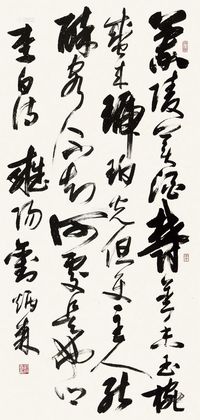 蘭陵美酒鬱金香玉椀
盛來琥珀光但使主人能
醉客不知何處是他鄉
李白詩 陽劉炳森